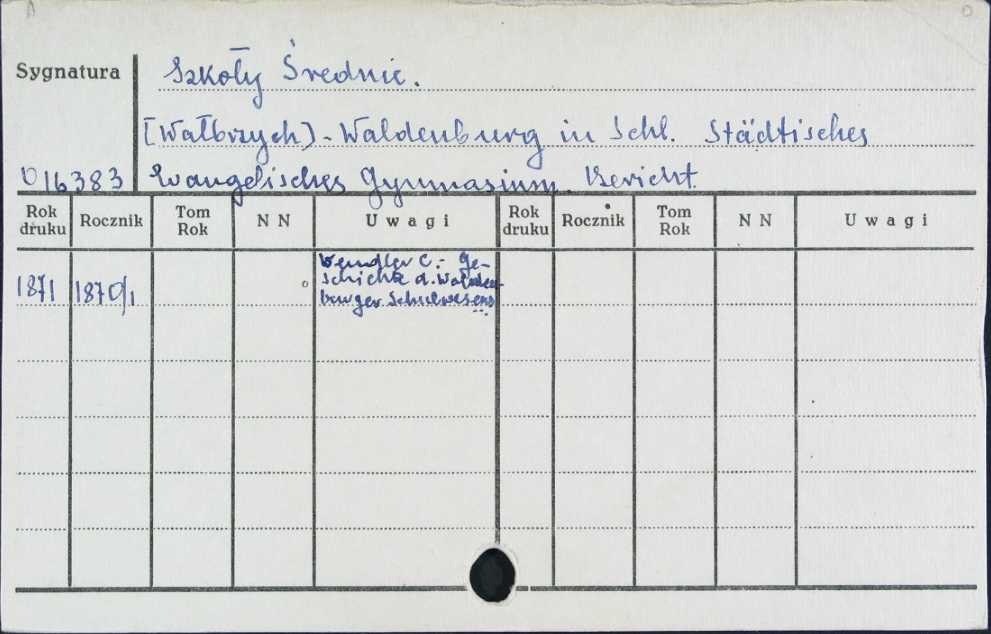 Sygnatura
Szkoły Średnie.
[Wałbrzych] - Waldenburg in Schl. Städtisches
016383 Evangelisches Gymnasium. Bericht.
Rok druku Rocznik Tom Rok N N Uwagi Rok druku Rocznik Tom Rok N N Uwagi
1871 1870/1 Wendler C. - Ge-
schichte d. Walden-
burger Schulwesens